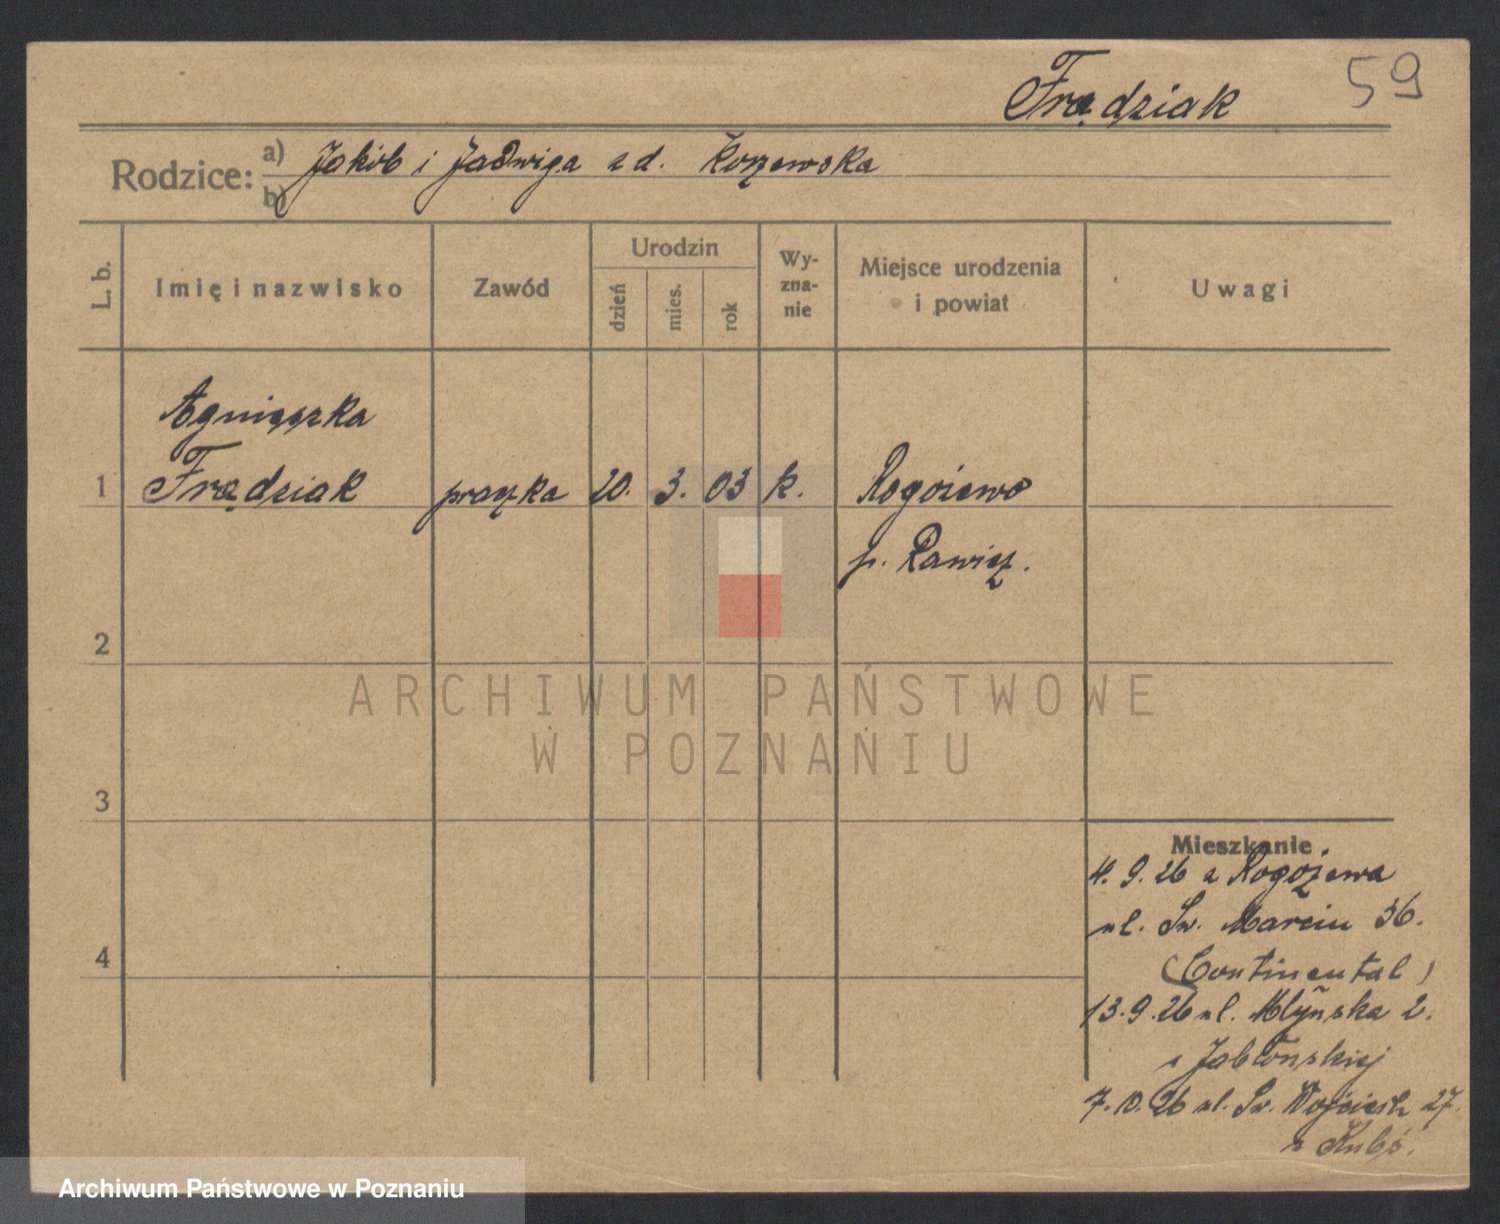 Frądziak 59
Rodzice: a) Jakób i Jadwiga z d. Koszewska
b)
L. b. Imię i nazwisko Zawód Urodzin dzień mies. rok Wy-zna-nie Miejsce urodzenia i powiat Uwagi
Agnieszka
1 Frądziak praczka 20. 3. 03 k. Rogożewo
p. Rawicz.
2
ARCHIWUM PAŃSTWOWE
W POZNANIU
3
Mieszkanie
4. 9. 26 z Rogożewa
ul. Św. Marcin 36.
4 (Continental)
13. 9. 26 ul. Młyńska 2.
u Jabłońskiej
7. 10. 26 ul. Św. Wojciech 27.
u
Archiwum Państwowe w Poznaniu